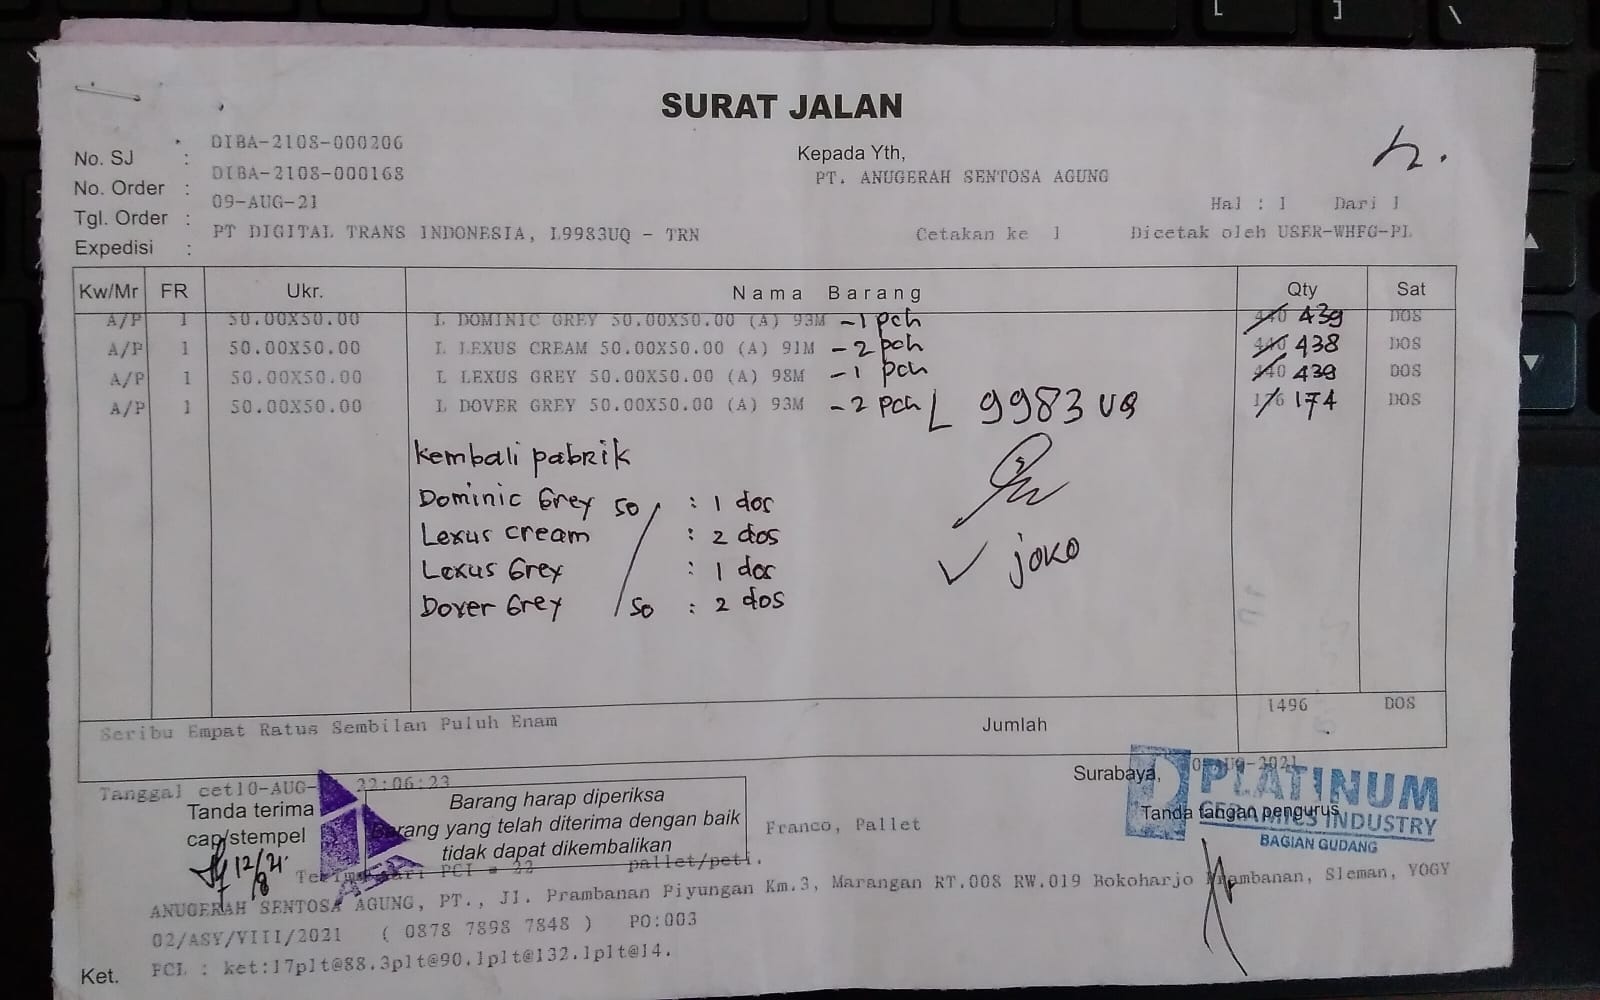 SURAT JALAN
No. SJ : DIBA-2108-000206
No. Order : DIBA-2108-000168
Tgl. Order : 09-AUG-21
Expedisi : PT DIGITAL TRANS INDONESIA, L9983UQ - TRN
Kepada Yth,
PT. ANUGERAH SENTOSA AGUNG
Hal : 1 Dari 1
Cetakan ke 1 Dicetak oleh USER-WHFG-PL
Kw/Mr FR Ukr. Nama Barang Qty Sat
A/P 1 50.00X50.00 L DOMINIC GREY 50.00X50.00 (A) 93M -1 pch 440 439 DOS
A/P 1 50.00X50.00 L LEXUS CREAM 50.00X50.00 (A) 91M -2 pch 440 438 DOS
A/P 1 50.00X50.00 L LEXUS GREY 50.00X50.00 (A) 98M -1 pch 440 439 DOS
A/P 1 50.00X50.00 L DOVER GREY 50.00X50.00 (A) 93M -2 pch 176 174 DOS
L 9983 UQ
kembali pabrik
Dominic Grey 50 : 1 dos
Lexus cream : 2 dos
Lexus Grey : 1 dos
Dover Grey 50 : 2 dos
joko
Seribu Empat Ratus Sembilan Puluh Enam Jumlah 1496 DOS
Tanggal cet10-AUG- 22:06:23
Tanda terima
cap/stempel
12/8 21
ASA
Barang harap diperiksa
Barang yang telah diterima dengan baik
tidak dapat dikembalikan
Franco, Pallet
Surabaya, AUG-2021
Tanda tangan pengurus
PLATINUM
CERAMICS INDUSTRY
BAGIAN GUDANG
Terima dari PCI = 22 pallet/peti.
ANUGERAH SENTOSA AGUNG, PT., Jl. Prambanan Piyungan Km.3, Marangan RT.008 RW.019 Bokoharjo Prambanan, Sleman, YOGY
02/ASY/VIII/2021 ( 0878 7898 7848 ) PO:003
Ket. PCL : ket:17plt@88.3plt@90.1plt@132.1plt@14.